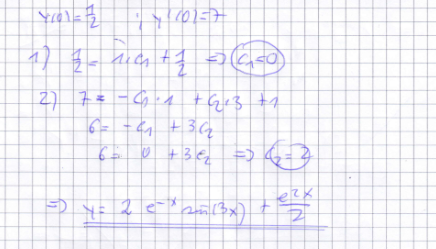 y(0)=1/2 ; y'(0)=7
1) 1/2 = 1·c₁ + 1/2 => c₁=0
2) 7 = -c₁·1 + c₂·3 + 1
6 = -c₁ + 3c₂
6 = 0 + 3c₂ => c₂=2
=> y = 2 e^(-x) sin(3x) + e^(2x)/2